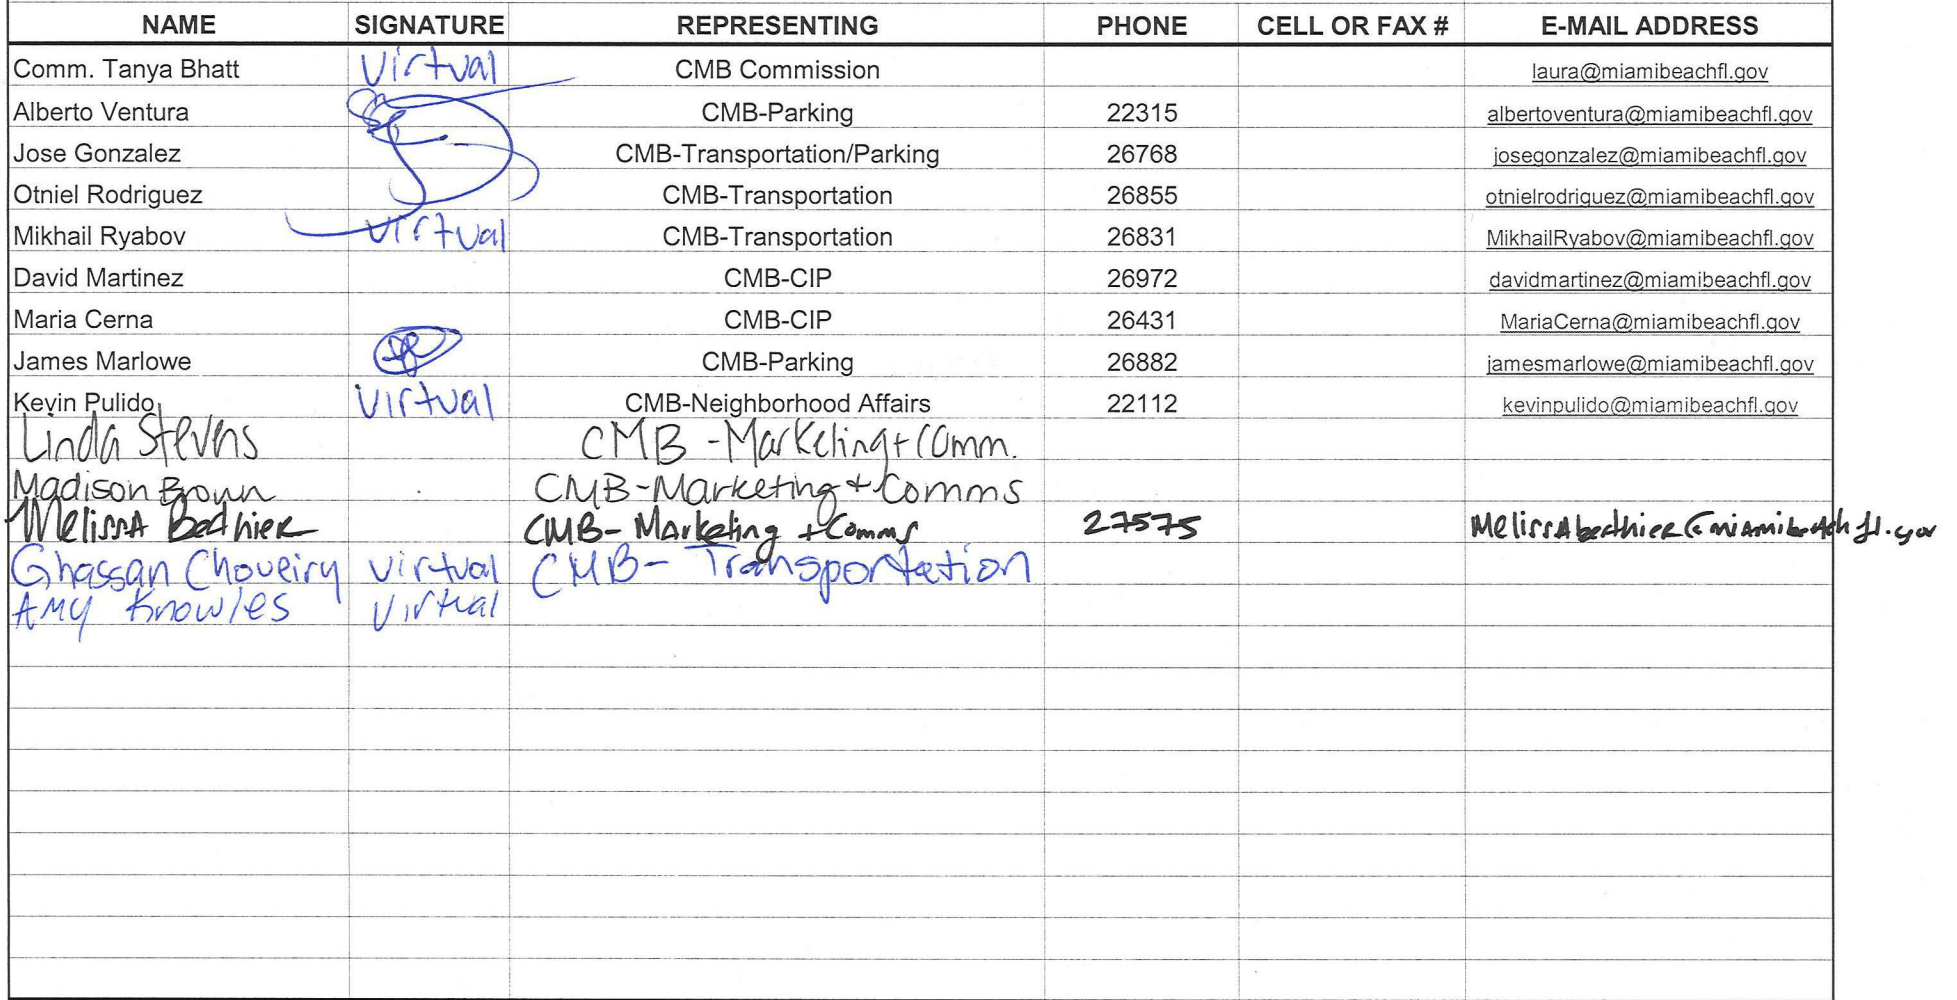 NAME SIGNATURE REPRESENTING PHONE CELL OR FAX # E-MAIL ADDRESS
Comm. Tanya Bhatt Virtual CMB Commission laura@miamibeachfl.gov
Alberto Ventura CMB-Parking 22315 albertoventura@miamibeachfl.gov
Jose Gonzalez CMB-Transportation/Parking 26768 josegonzalez@miamibeachfl.gov
Otniel Rodriguez CMB-Transportation 26855 otnielrodriguez@miamibeachfl.gov
Mikhail Ryabov Virtual CMB-Transportation 26831 MikhailRyabov@miamibeachfl.gov
David Martinez CMB-CIP 26972 davidmartinez@miamibeachfl.gov
Maria Cerna CMB-CIP 26431 MariaCerna@miamibeachfl.gov
James Marlowe CMB-Parking 26882 jamesmarlowe@miamibeachfl.gov
Kevin Pulido Virtual CMB-Neighborhood Affairs 22112 kevinpulido@miamibeachfl.gov
Linda Stevens CMB - Marketing + Comm.
Madison Brown CMB-Marketing + Comms
Melissa Berthier CMB- Marketing + Comms 27575 Melissaberthier@miamibeachfl.gov
Ghassan Choueiry Virtual CMB- Transportation
Amy Knowles Virtual